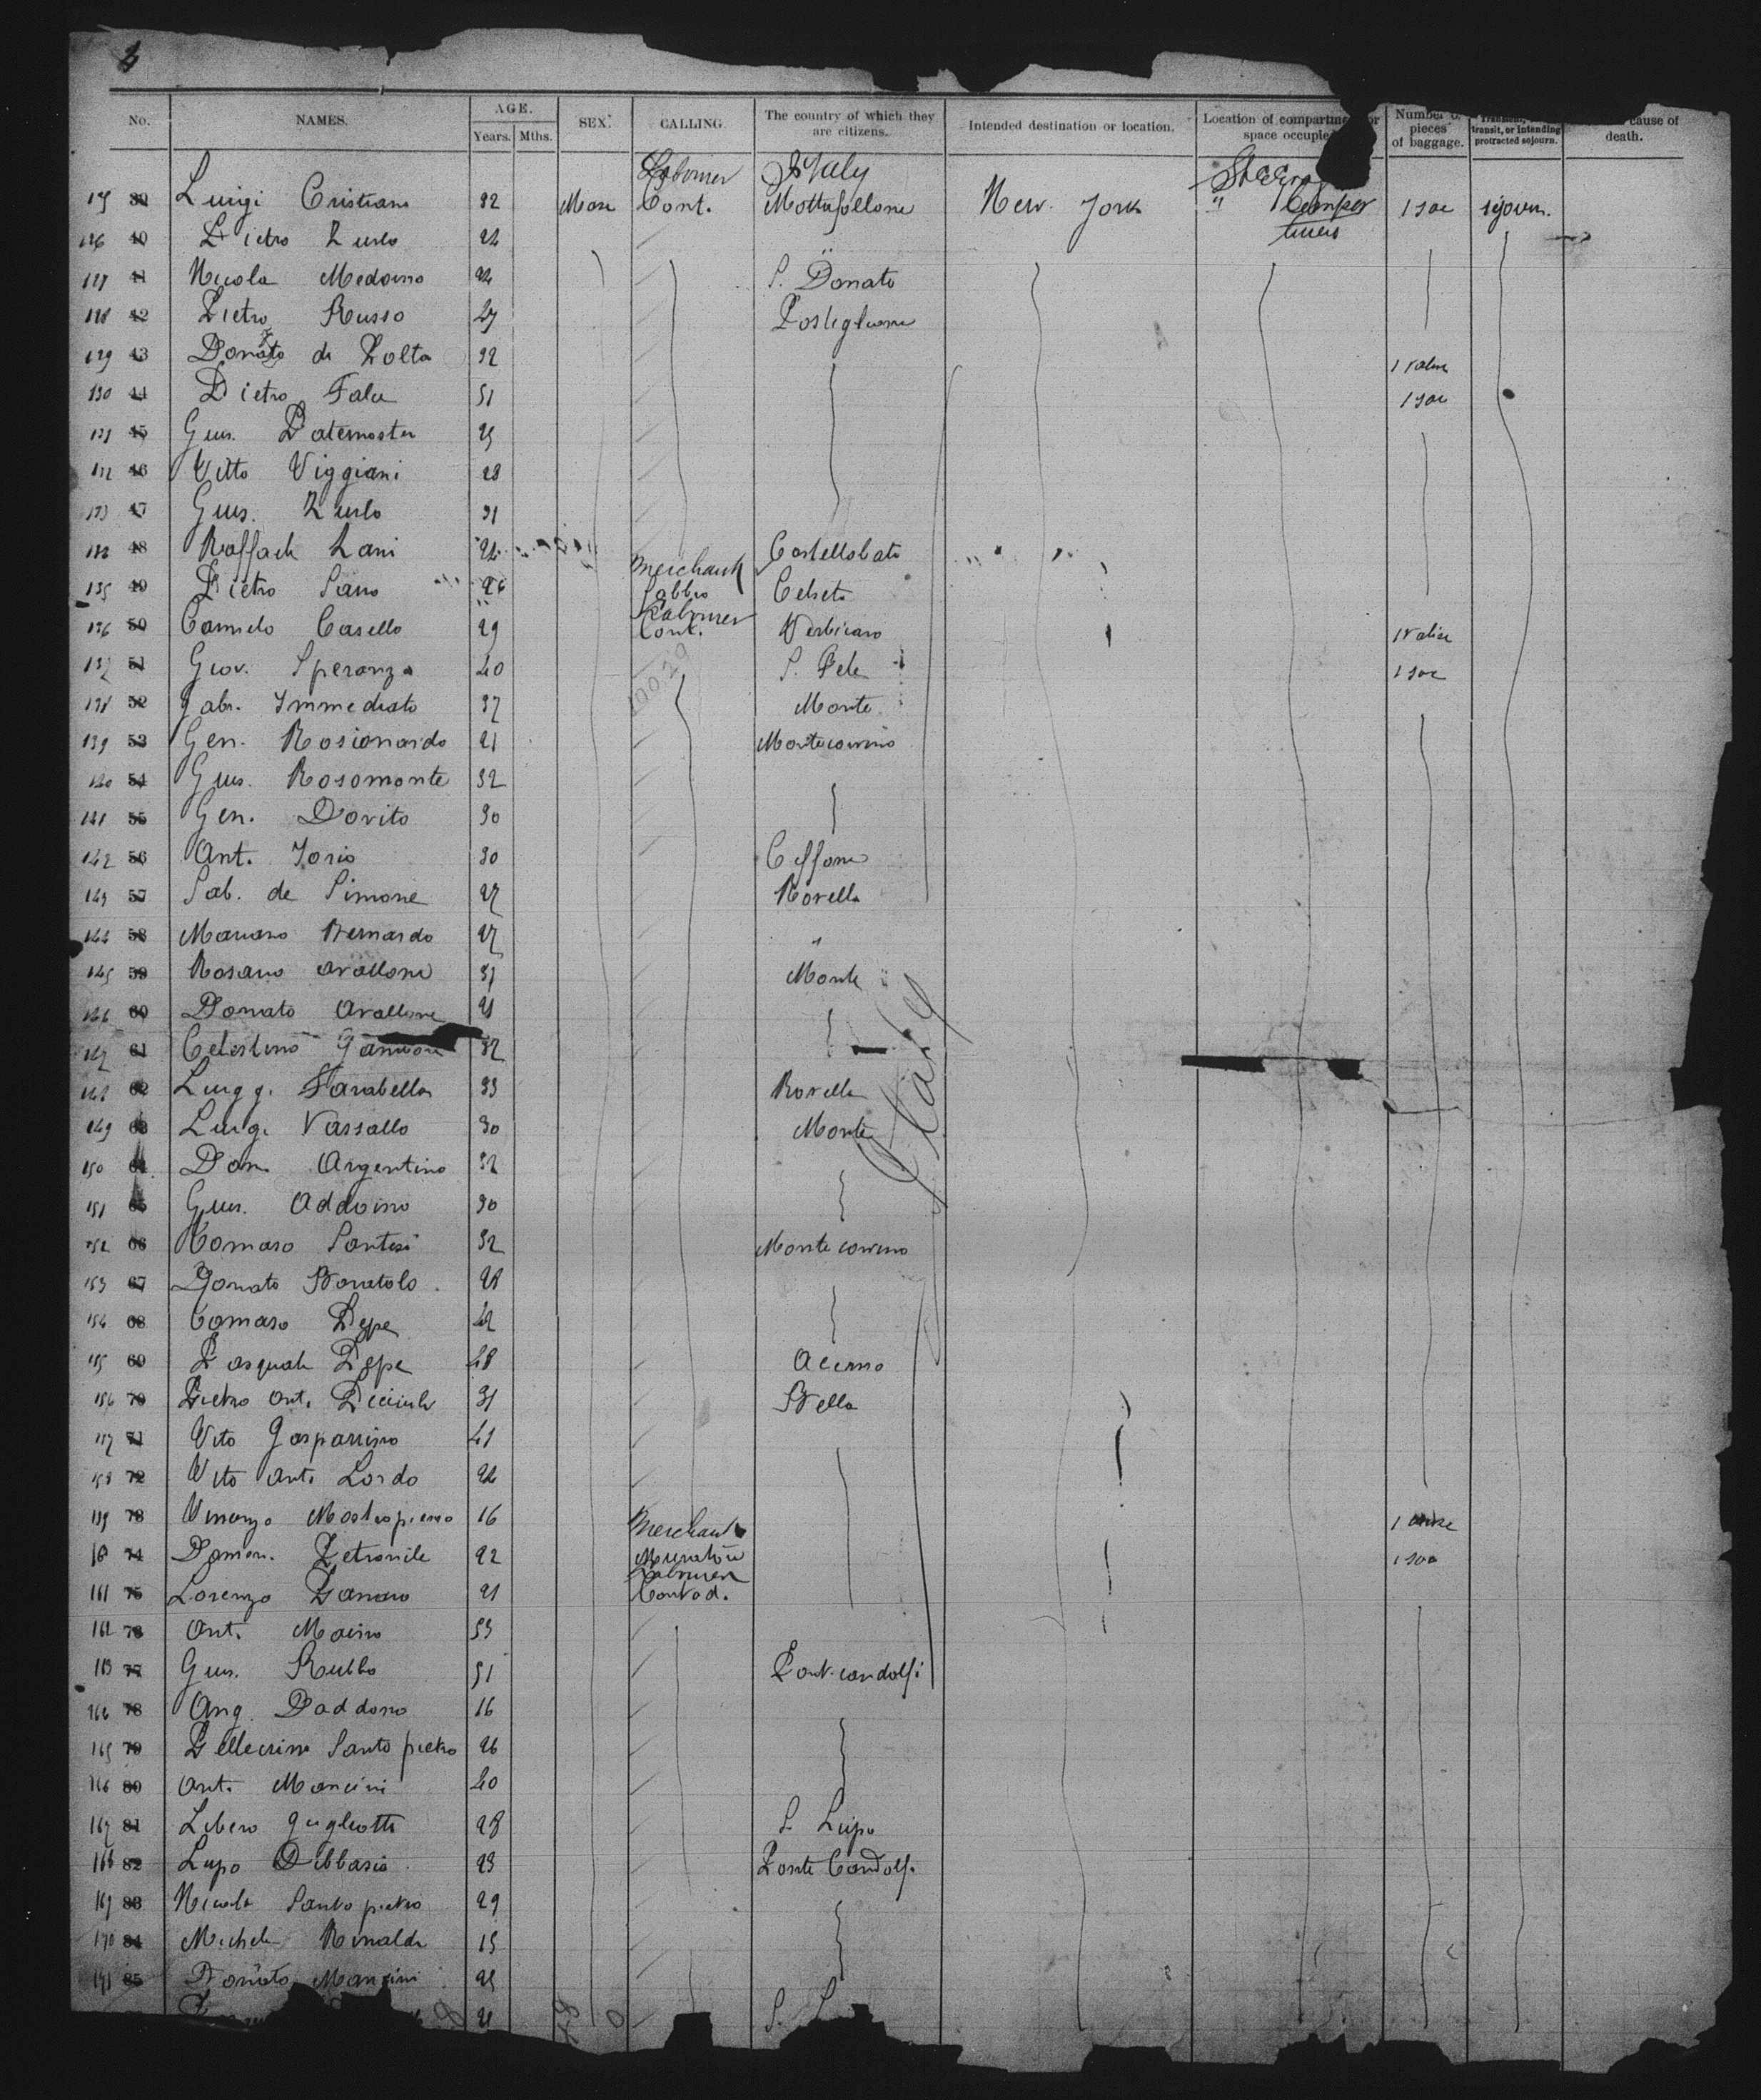 No. NAMES. AGE. SEX. CALLING. The country of which they are citizens. Intended destination or location. Location of compartment or space occupied Number of pieces of baggage. transit, or intending protracted sojourn. cause of death.
Years. Mths.
Labourer Italy
39 Luigi Cristiano 32 Male Cont. Mottafollone New York " 1 sac sojourn.
126 40 Pietro Zurlo 24 "
127 41 Nicola Medoino 24 S. Donato
128 42 Pietro Russo 27 Postiglione
129 43 Donato di Polta 32 1 valise
130 44 Pietro Falce 51 1 sac
131 45 Gius. Paternoster 25
132 46 Vitto Viggiani 28
133 47 Gius. Zurlo 31
48 Raffaele Lani 24 Castellabate
Merchant
135 49 Pietro Sano 26 Celseta
Labourer
136 50 Carmelo Casello 29 Cont. Verbicaro 1 valise
137 51 Giov. Speranza 40 S. Fele 1 sac
138 52 Gabr. Immediato 37 Monte
139 53 Gen. Rosionardo 21 Montecorvino
140 54 Gius. Rosomonte 32
141 55 Gen. Dovito 30
142 56 Ant. Iorio 30 Giffoni
143 57 Sab. de Simone 27 Rovella
144 58 Mariano Bernardo 27 "
145 59 Rosario Avallone 31 Monte
146 60 Donato Avallone 21
147 61 Celestino 32
148 62 Luigi Farabella 33 Rovella
149 63 Luigi Vassallo 30 Monte
150 64 Dom. Argentino 32
151 65 Gius. Addoino 30
152 66 Tomaso Santesi 32 Monte corvino
153 67 Donato Bonatolo 28
154 68 Tomaso Pepe 42
155 69 Pasquale Pepe 48 Acerno
156 70 Pietro Ant. 31 Bella
157 71 Vito Gasparrino 41
158 72 Vito Ant. Lordo 24
159 73 Vincenzo Mastropierro 16 Merchant 1
160 74 Domen. Petronile 22 1 sac
Labourer
161 75 Lorenzo 21 Contad.
162 76 Ant. Maino 33
163 77 Gius. Rubbo 51 Pont. landolfi
164 78 Ang. Daddona 16
165 79 Pellecrino Santo pietro 26
166 80 Ant. Mancini 40
167 81 Libero Gugliotti 28 S. Lupo
168 82 Lupo Dibbasio 23 Ponte Landolf.
169 83 Nicola Santo pietro 29
170 84 Michele Rinaldi 15
171 85 Donato Mancini 25
21 S.